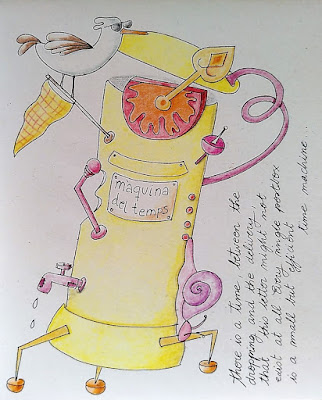 maquina
del temps
there is a time between the
dropping and the delivery
that the letter might not
exist at all. Every single postbox
is a small but efficient time machine